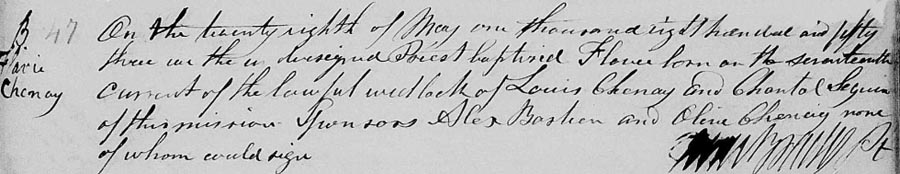 B 47 On the twenty eighth of May one thousand eight hundred and fifty
three we the undersigned Priest baptized Flavie born on the seventeenth
Flavie
Chenay current of the lawful wedlock of Louis Chenay and Chantal Seguin
of this mission Sponsors Alex Bastien and Olive Chenay none
of whom could sign